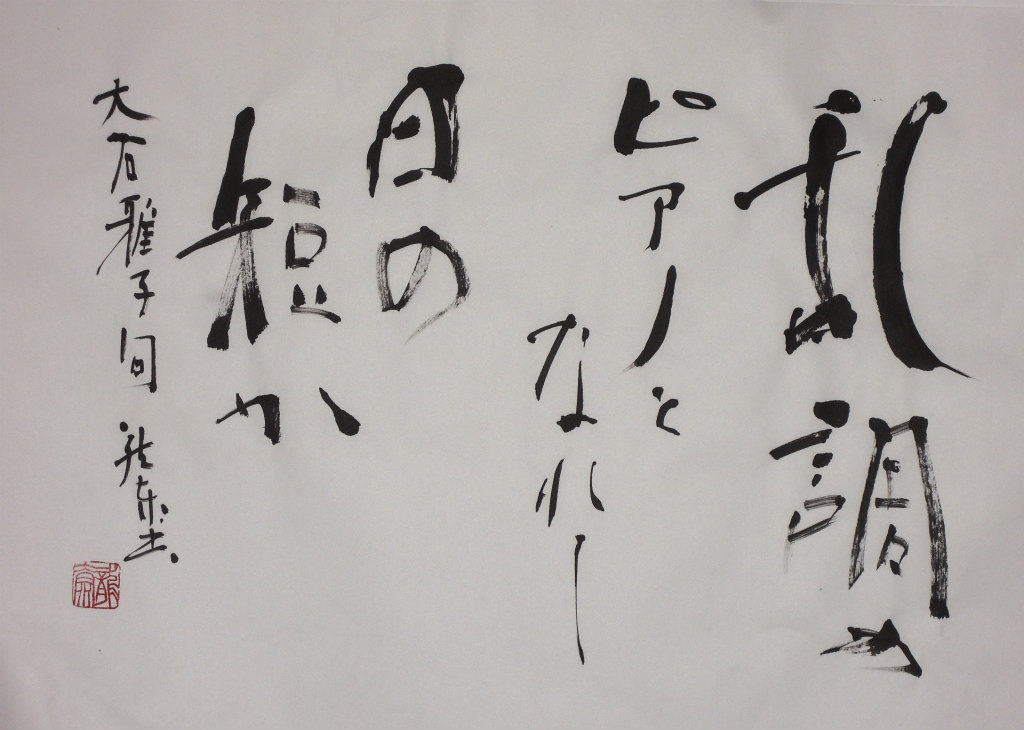 乱調の
ピアノと
なれし
日の
短か
大石雅子句